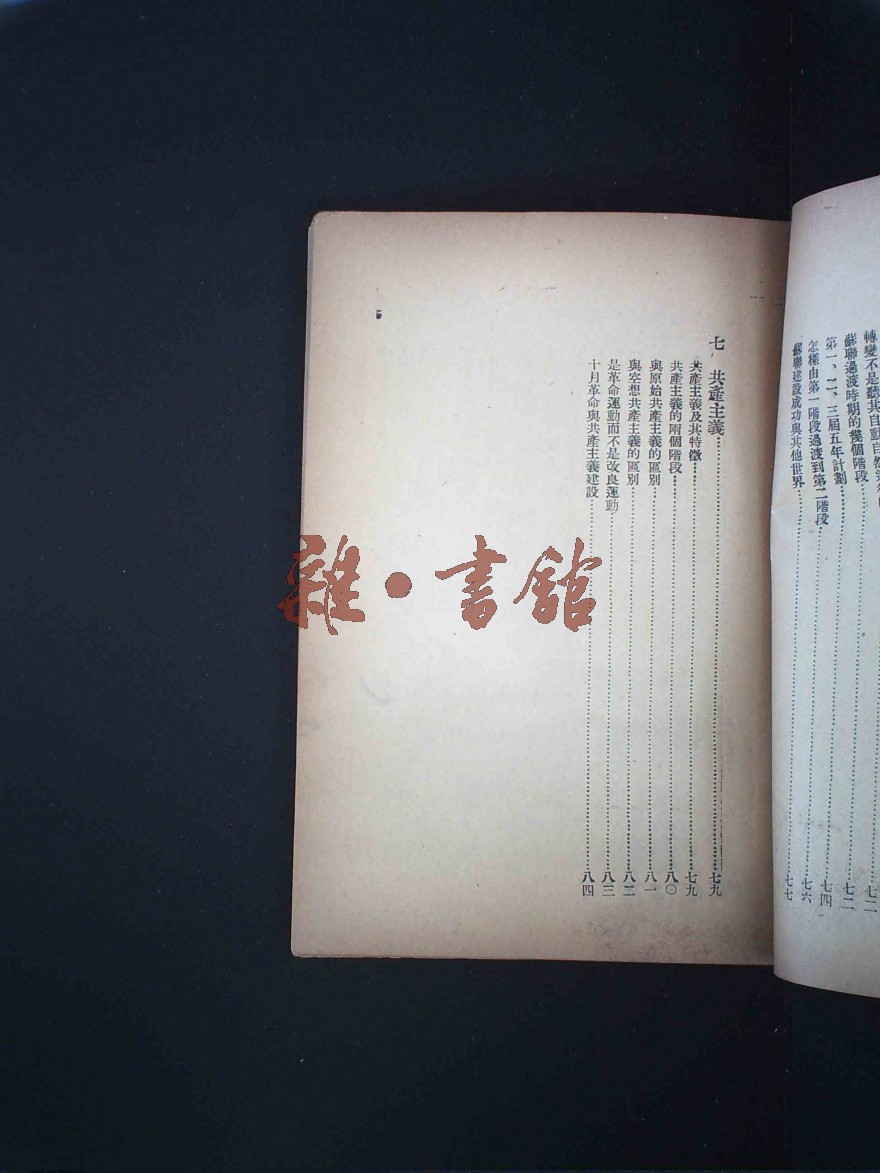 轉變不是聽其自動自然
蘇聯過渡時期的幾個階段……七二
第一、二、三屆五年計劃……七四
怎樣由第一階段過渡到第二階段……七六
蘇聯建設成功與其他世界……七七
七 共產主義……七九
共產主義及其特徵……七九
共產主義的兩個階段……八〇
與原始共產主義的區別……八一
與空想共產主義的區別……八二
是革命運動而不是改良運動……八三
十月革命與共產主義建設……八四
5
雜·書館